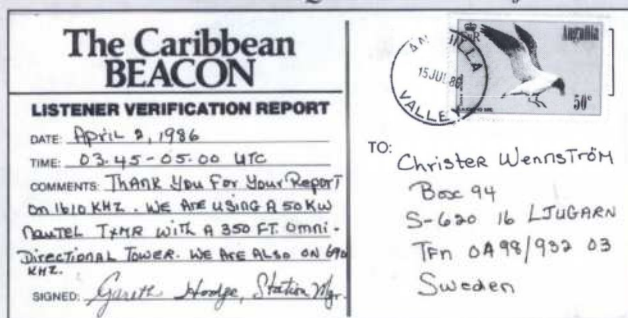 The Caribbean
BEACON
LISTENER VERIFICATION REPORT
DATE: April 2, 1986
TIME: 03.45-05.00 UTC
COMMENTS: THANK You For Your Report
On 1610 KHZ. WE ARE USING A 50KW
NAUTEL TXMR WITH A 350 FT. Omni-
Directional Tower. WE ARE ALSO ON 690
KHZ.
SIGNED: Gareth Hodge, Station Mgr.
ANGUILLA
15JUL86
VALLEY
Anguilla
50¢
TO: Christer Wennström
Box 94
S-620 16 LJUGARN
TFn 0498/932 03
Sweden